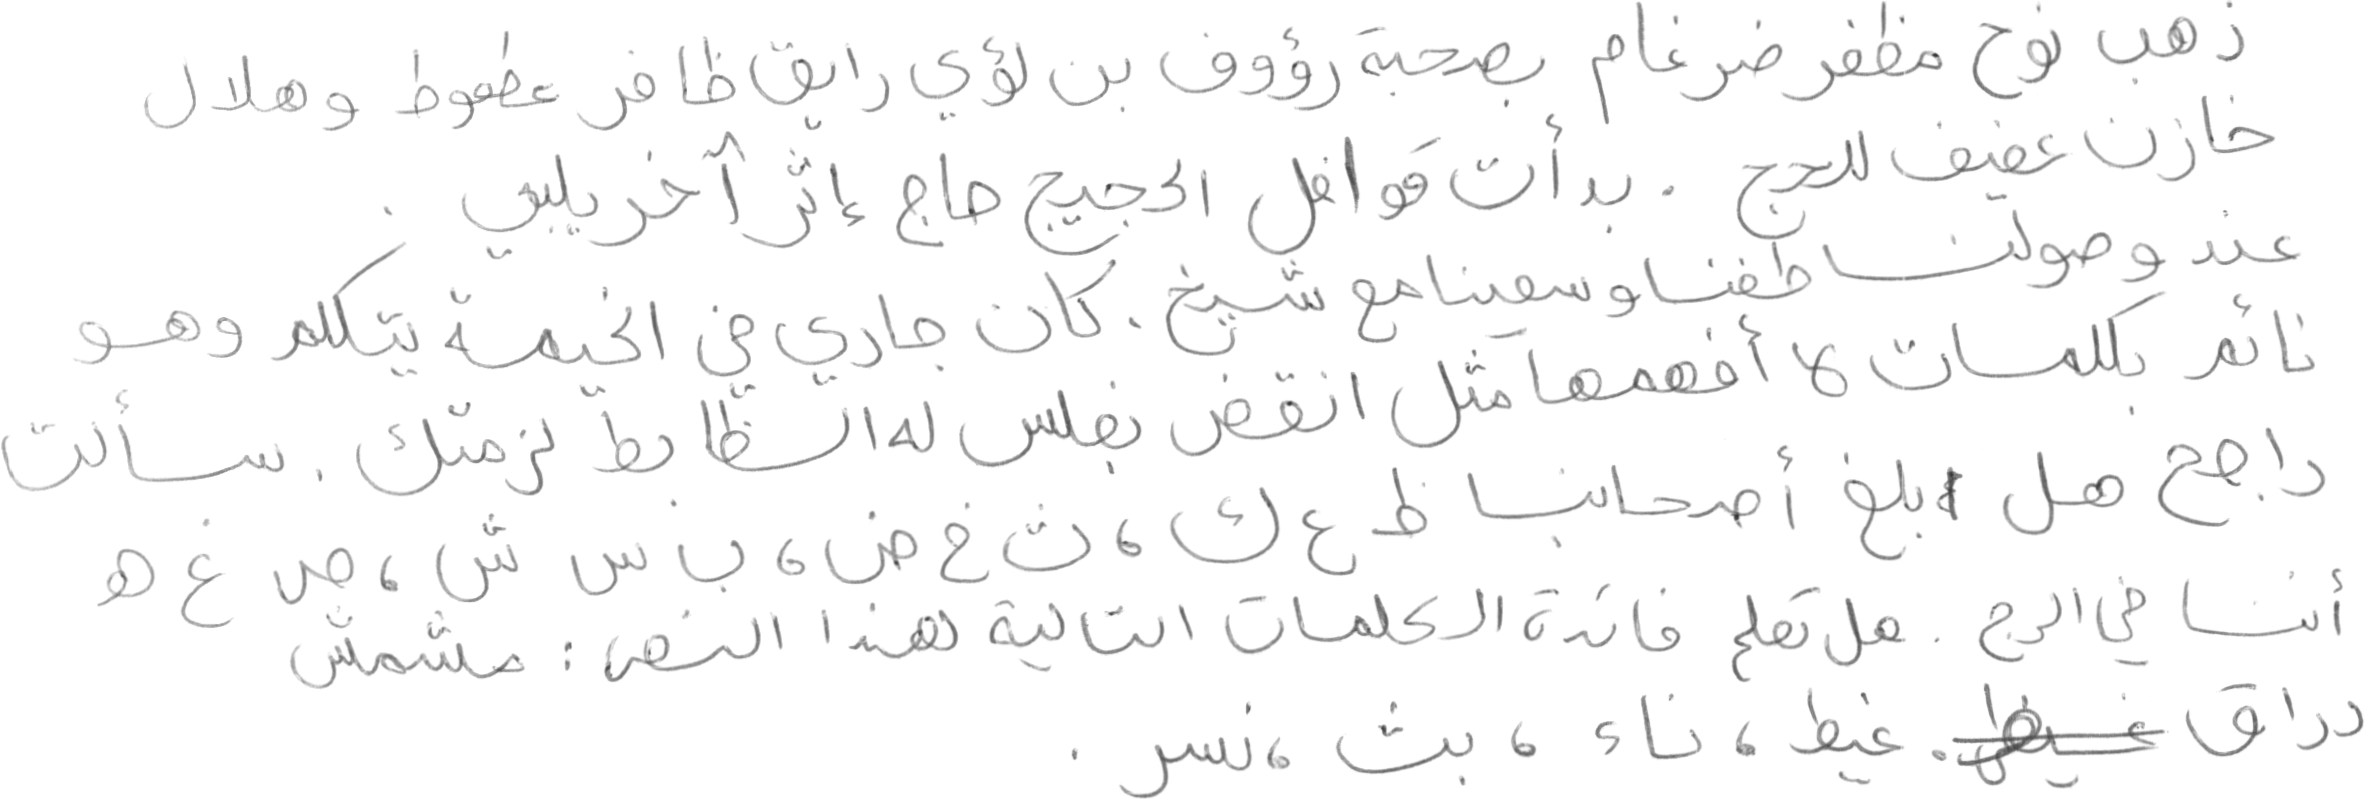 ذهب نوح مظفر ضرغام بصحبة رؤوف بن لؤي رايق ظافر عطعوط وهلال
خازن عفيف للحج . بدأت قوافل الحجيج حاج إثر آخر يلبي .
عند وصولنا طفنا وسعينا مع شيخ . كان جاري في الخيمة يتكلم وهو
نائم بكلمات لا أفهمها مثل انقض بفلس له الشظا بط لزمتك . سألت
راجح هل بلغ أصحابنا ظ ع ك ، ث خ ض ، ب س ش ، ص غ ه
أننا في الرج . هل تعلم فائدة الكلمات التالية لهذا النص : مشمش
دراق . غيط ، ناء ، بث ، نسر .